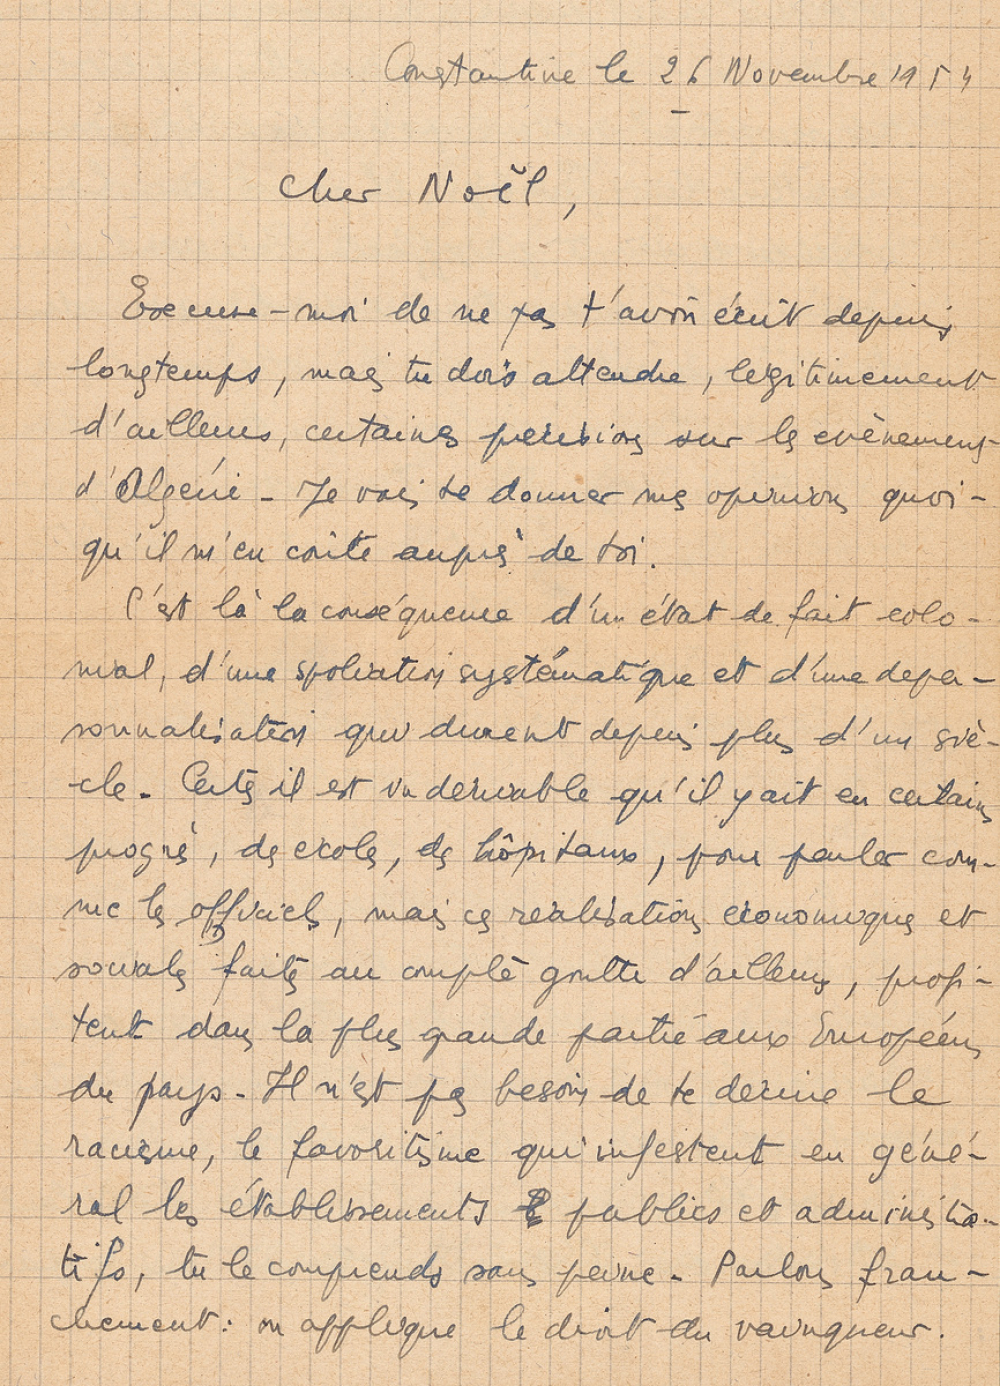 Constantine le 26 Novembre 1954
Cher Noël,
Excuse-moi de ne pas t'avoir écrit depuis
longtemps, mais tu dois attendre, légitimement
d'ailleurs, certaines précisions sur les evènements
d'Algérie - Je vais te donner mes opinions quoi-
qu'il m'en coûte auprès de toi.
C'est là la conséquence d'un état de fait colo-
nial, d'une spoliation systématique et d'une deper-
sonnalisation qui durent depuis plus d'un siè-
cle. Certes il est indeniable qu'il y ait eu certains
progrès, des ecoles, des hôpitaux, pour parler com-
me les officiels, mais ces realisations economiques et
sociales faites au compte goutte d'ailleurs, profi-
tent dans la plus grande partie aux Européens
du pays. Il n'est pas besoin de te decrire le
racisme, le favoritisme qui infestent en géné-
ral les établissements publics et administra-
tifs, tu le comprends sans peine. Parlons fran-
chement : on applique le droit du vainqueur.